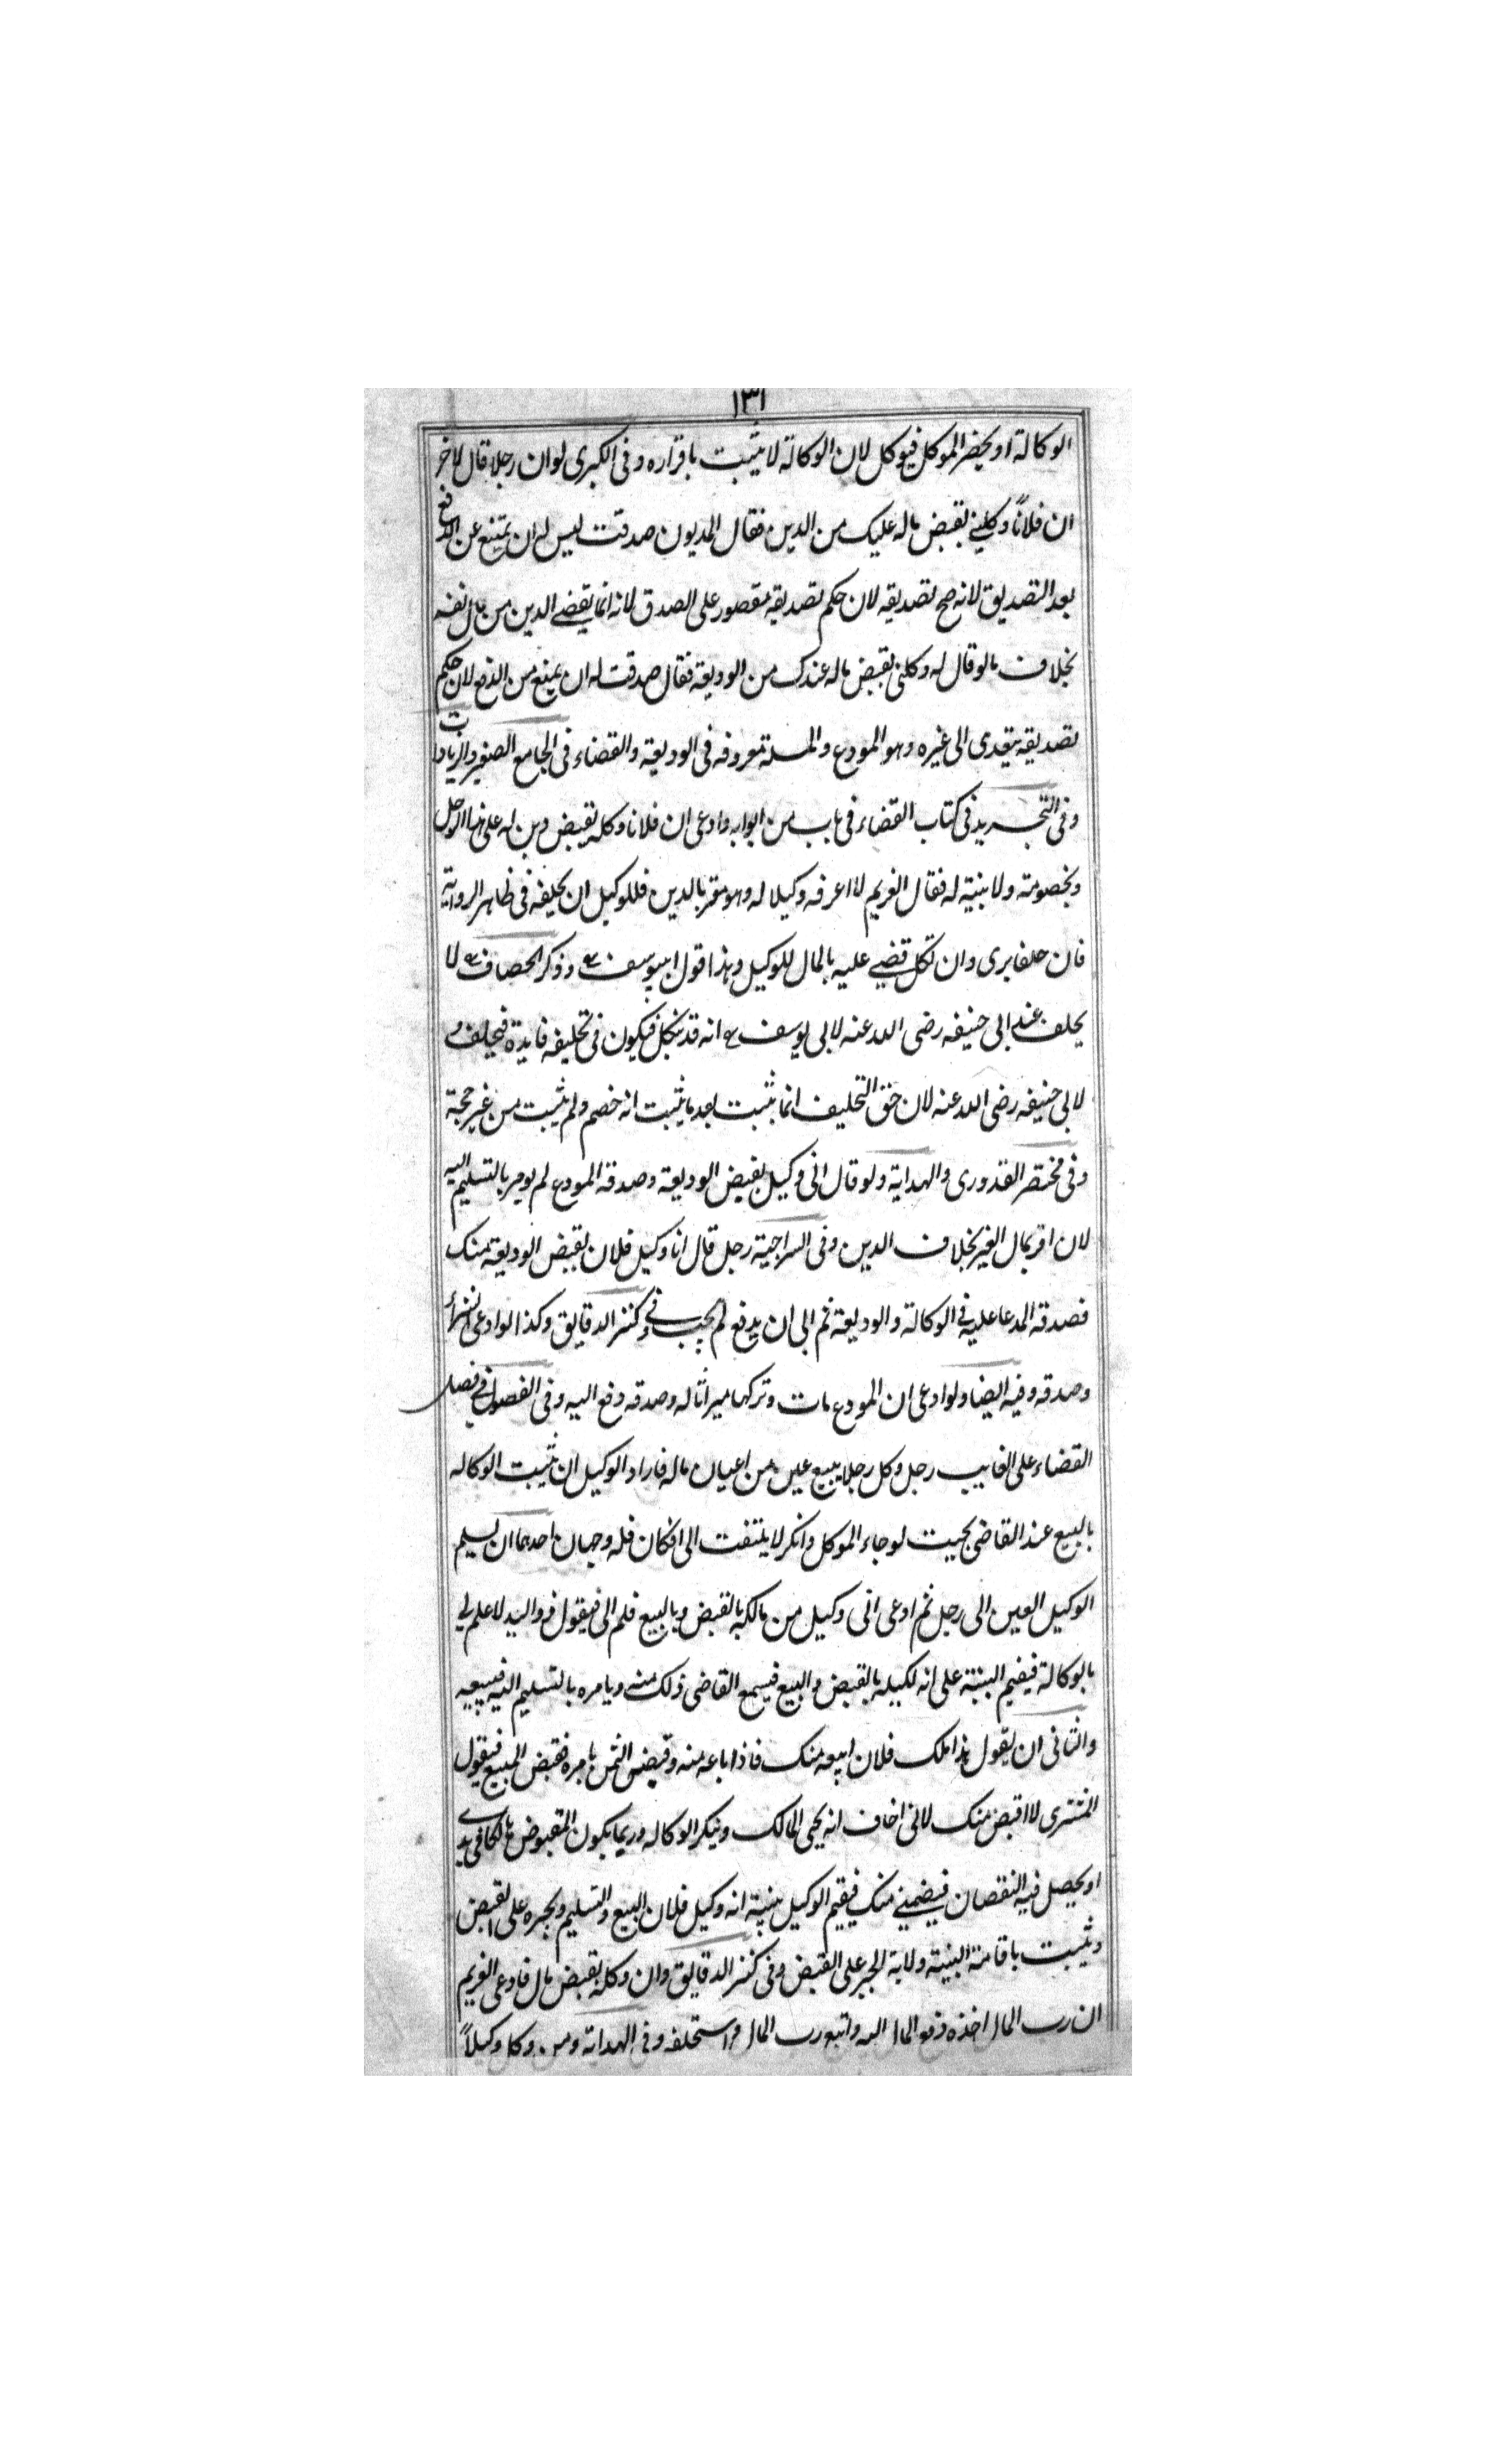 ١٣١
الوكالة او يحضر الموكل فيوكل لان الوكالة لا يثبت باقراره وفى الكبرى لو ان رجلا قال لاخر
ان فلاناً وكلني بقبض ماله عليك من الدين فقال المديون صدقت ليس له ان يمتنع عن الدفع
بعد التصديق لانه صح تصديقه لان حكم تصديقه مقصور على الصدق لانه انما يقضي الدين من مال نفسه
بخلاف ما لو قال له وكلنى بقبض ماله عندك من الوديعة فقال صدقت له ان يمنع من الدفع لان حكم
تصديقه يتعدى الى غيره وهو المودع والمسئلة معروفه فى الوديعة والقضاء فى الجامع الصغير والزيادات
وفى التجريد فى كتاب القضاء فى باب من ابوابه وادعى ان فلانا وكله بقبض دين له على هذا الرجل
وبخصومته ولا بينة له فقال الغريم لا اعرفه وكيلا له وهو مقر بالدين فللوكيل ان يحلفه فى ظاهر الرواية
فان حلف برى وان نكل قضي عليه بالمال للوكيل وهذا قول ابيوسف رح وذكر الخصاف رح لا
يحلف عند ابى حنيفه رضى الله عنه لابى يوسف رح انه قد ينكل فيكون فى تحليفه فايدة فيحلف و
لابى حنيفه رضى الله عنه لان حق التحليف انما يثبت بعد ما يثبت انه خصم ولم يثبت من غير حجة
وفى مختصر القدورى والهداية ولو قال انى وكيل بقبض الوديعة وصدقه المودع لم يومر بالتسليم اليه
لان اقر بمال الغير بخلاف الدين وفى السراجية رجل قال انا وكيل فلان بقبض الوديعة منك
فصدقه المدعا عليه فى الوكالة والوديعة ثم ابى ان يدفع لم يجب وفي كنز الدقايق وكذا لو ادعى الشراء
وصدقه وفيه ايضا ولو ادعى ان المودع مات وتركها ميراثا له وصدقه دفع اليه وفى الفصول في فصل
القضاء على الغايب رجل وكل رجلا ببيع عين من اعيان ماله فاراد الوكيل ان يثبت الوكاله
بالبيع عند القاضى بحيث لو جاء الموكل وانكر لا يلتفت الى انكان فله وجهان احدهما ان يسلم
الوكيل العين الى رجل ثم ادعى انى وكيل من مالكه بالقبض وبالبيع فلم الى فيقول ذو اليد لا علم لي
بالوكالة فيقيم البينة على انه لكيله بالقبض والبيع فيسمع القاضى ذلك منه ويامره بالتسليم اليه فيبيعه
والثانى ان يقول هذا ملك فلان ابيعه منك فاذا باعه منه وقبض الثمن بامره فقبض المبيع فيقول
المشترى لا اقبض منك لانى اخاف انه يجى المالك وينكر الوكاله وربما يكون المقبوض هالكا في يدي
او يحصل فيه النقصان فيضمني منك فيقيم الوكيل بينة انه وكيل فلان بالبيع والتسليم ويجبره على القبض
ويثبت باقامة البينة ولاية الجبر على القبض وفى كنز الدقايق وان وكله بقبض مال فادعى الغريم
ان رب المال اخذه دفع المال اليه واتبع رب المال واستحلفه وفى الهداية ومن وكل وكيلاً